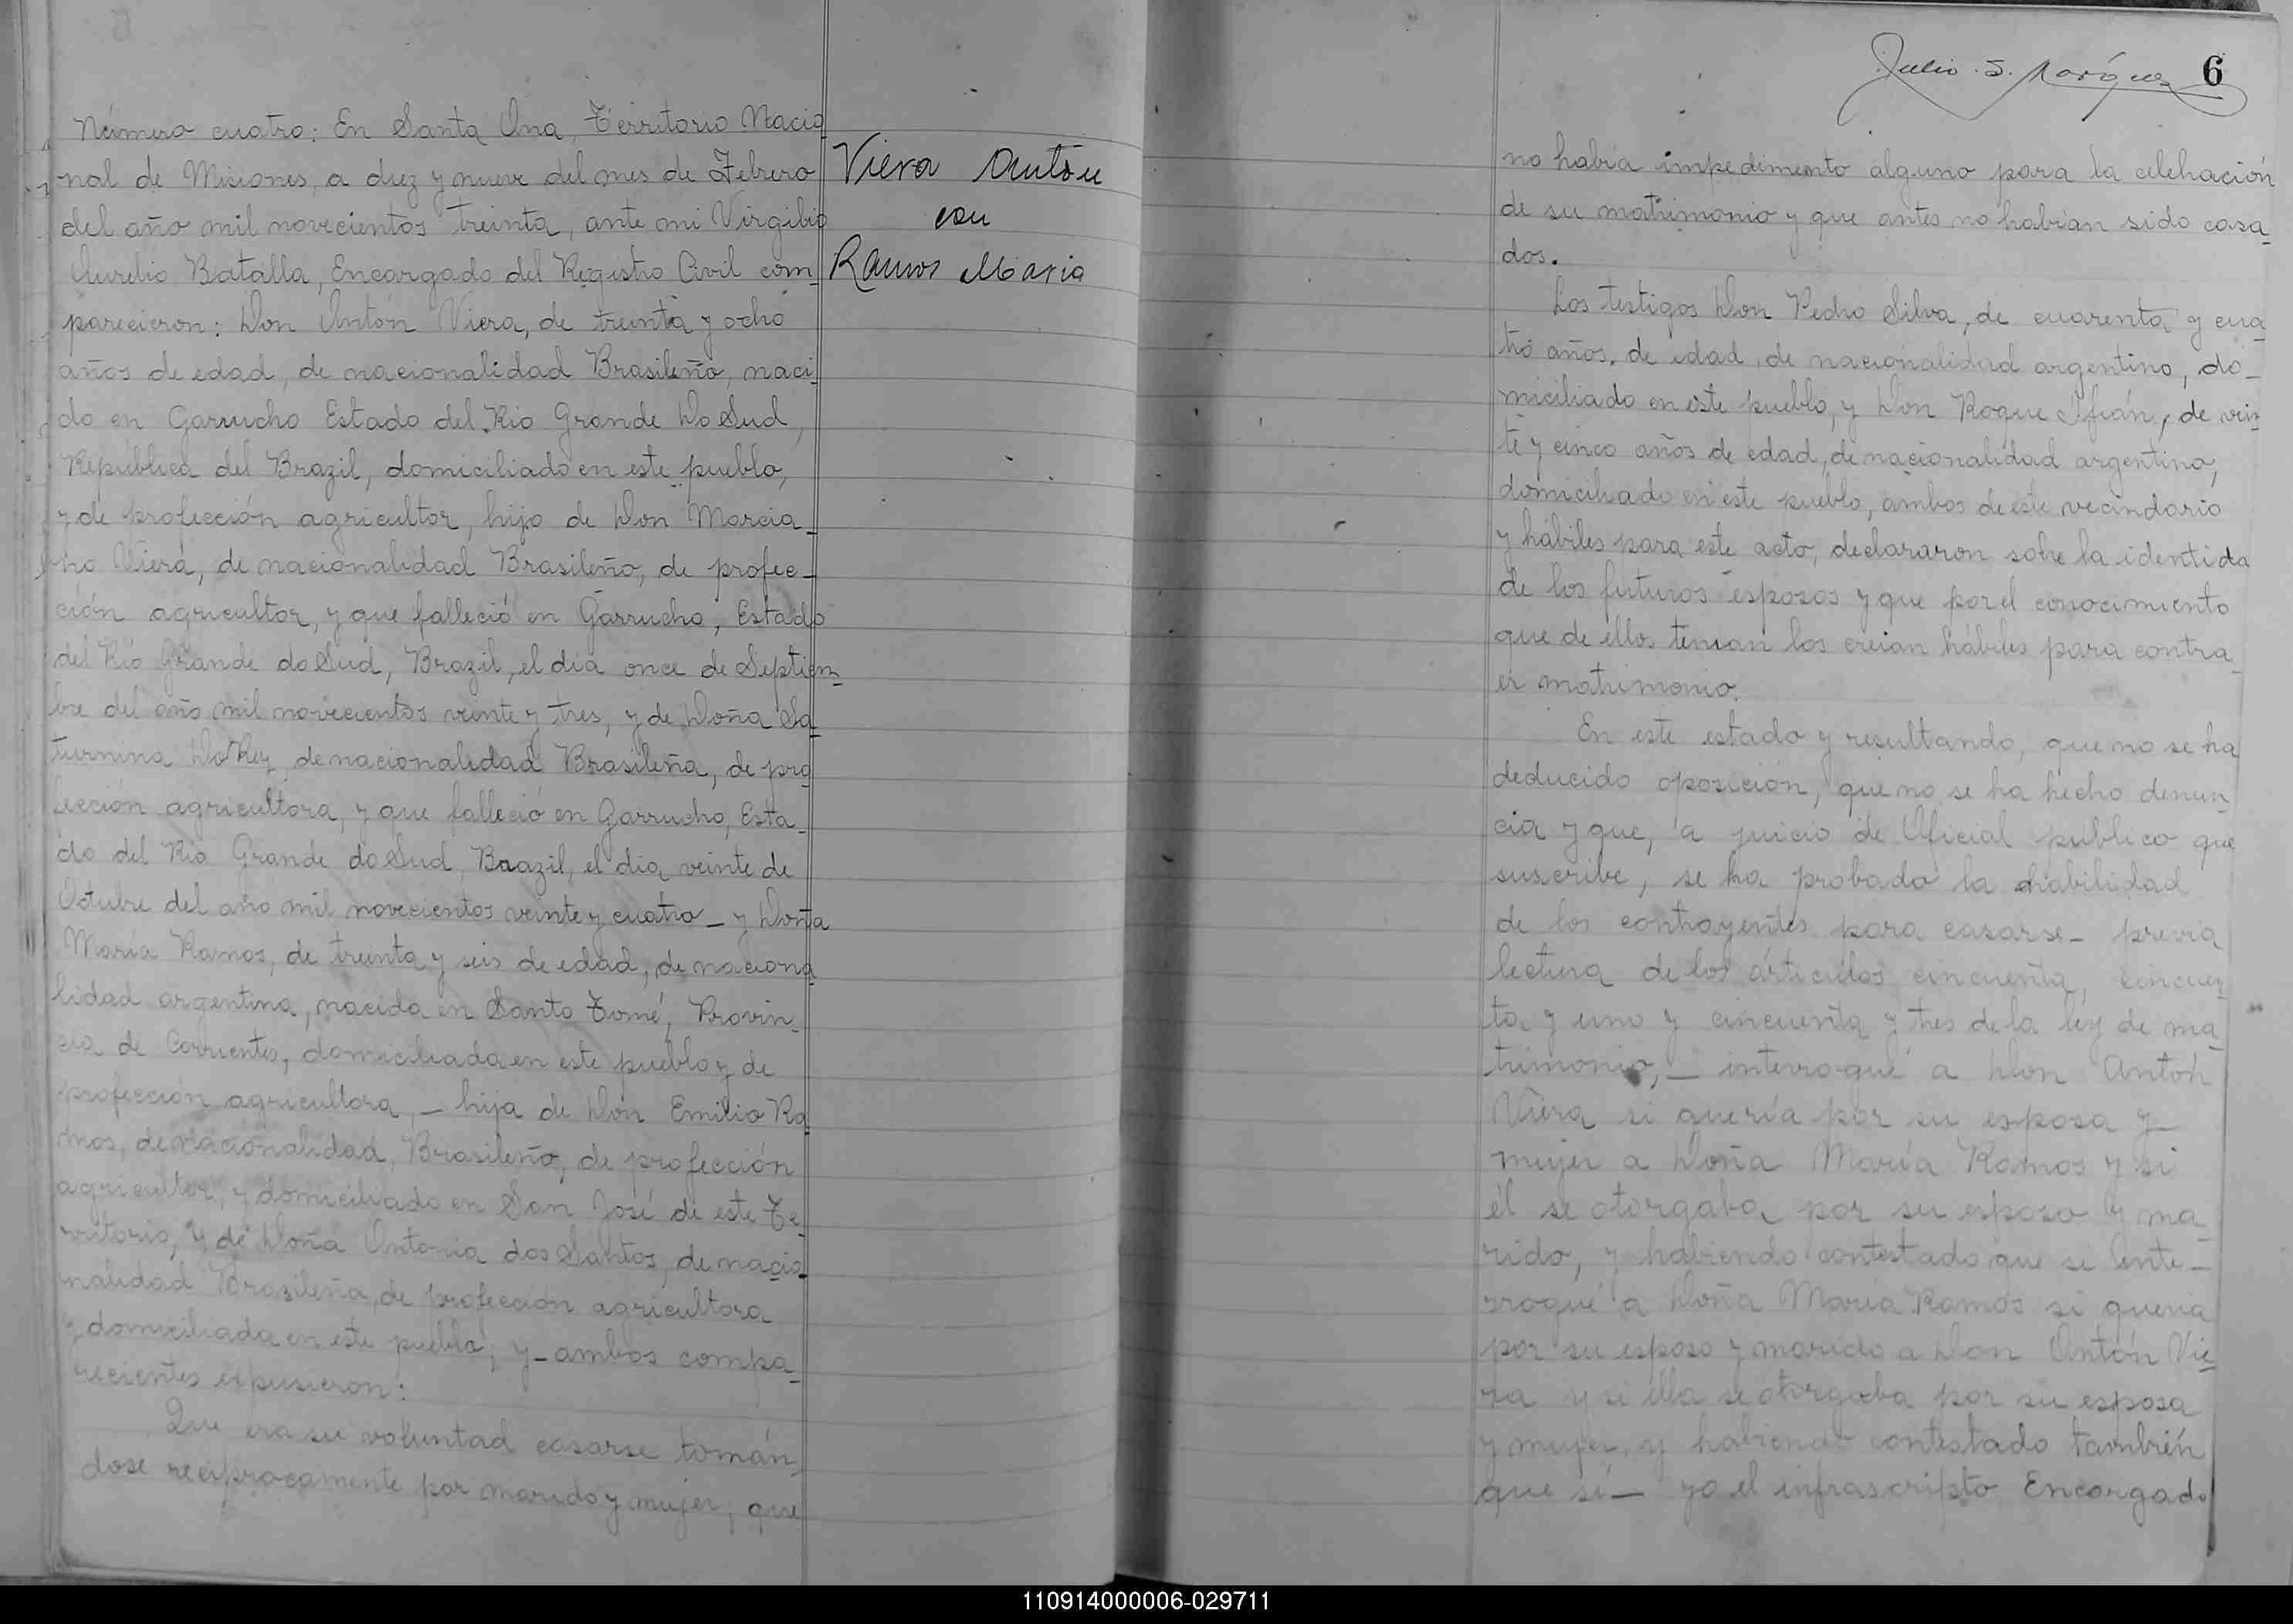 Número cuatro: En Santa Ana, Territorio Nacio
nal de Misiones, a diez y nueve del mes de Febrero
del año mil novecientos treinta, ante mi Virgibio
Aurelio Batalla, Encargado del Registro Civil com-
parecieron: Don Antón Viera, de treinta y ocho
años de edad, de nacionalidad Brasileño, naci-
do en Garrucho Estado del Rio Grande Do Sud,
Republica del Brazil, domiciliado en este pueblo,
y de profección agricultor, hijo de Don Marcia-
no Viera, de nacionalidad Brasileño, de profec-
ción agricultor, y que falleció en Garrucho, Estado
del Rio Grande do Sud, Brazil, el dia once de Septiem-
bre del año mil novecientos veinte y tres, y de Doña Sa-
turnina Do Rey, de nacionalidad Brasileña, de pro
fección agricultora, y que falleció en Garrucho, Esta-
do del Rio Grande do Sud, Brazil, el dia veinte de
Octubre del año mil novecientos veinte y cuatro - y Doña
María Ramos, de treinta y seis de edad, de naciona
lidad argentina, nacida en Santo Tomé, Provin-
cia de Corrientes, domiciliada en este pueblo y de
profección agricultora, - hija de Don Emilio Ra
mos, de nacionalidad Brasileño, de profección
agricultor, y domiciliado en San José de este Te-
rritorio, y de Doña Antonia dos Santos, de nacio-
nalidad Brazileña, de profección agricultora
y domiciliada en este pueblo; y - ambos compa-
recientes expusieron:
Que era su voluntad casarse tomán-
dose reciprocamente por marido y mujer; que
Viera Antón
con
Ramos Maria
Julio S. Marquez 6
no había impedimento alguno para la celebración
de su matrimonio y que antes no habían sido casa-
dos.
Los testigos Don Pedro Silva, de cuarenta y cua-
tro años de edad, de nacionalidad argentino, do-
miciliado en este pueblo, y Don Roque Ifrán, de vein-
te y cinco años de edad, de nacionalidad argentino,
domiciliado en este pueblo, ambos de este vecindario
y hábiles para este acto, declararon sobre la identida
de los futuros esposos y que por el conocimiento
que de ellos tenian los creian hábiles para contra-
er matrimonio.
En este estado y resultando, que no se ha
deducido oposición, que no se ha hecho denun
cia y que, a juicio de Oficial publico que
suscribe, se ha probado la habilidad
de los contrayentes para casarse - previa
lectura de los árticulos cincuenta, cincuen-
ta y uno y cincuenta y tres de la ley de ma-
trimonio, - interrogué a Don Antón
Viera si quería por su esposa y
mujer a Doña María Ramos y si
él se otorgaba por su esposo y ma-
rido, y habiendo contestado que si inte-
rrogué a Doña María Ramos si queria
por su esposo y marido a Don Antón Vie-
ra y si ella se otorgaba por su esposa
y mujer, y habiendo contestado también
que sí - yo el infrascripto Encargado
110914000006-029711